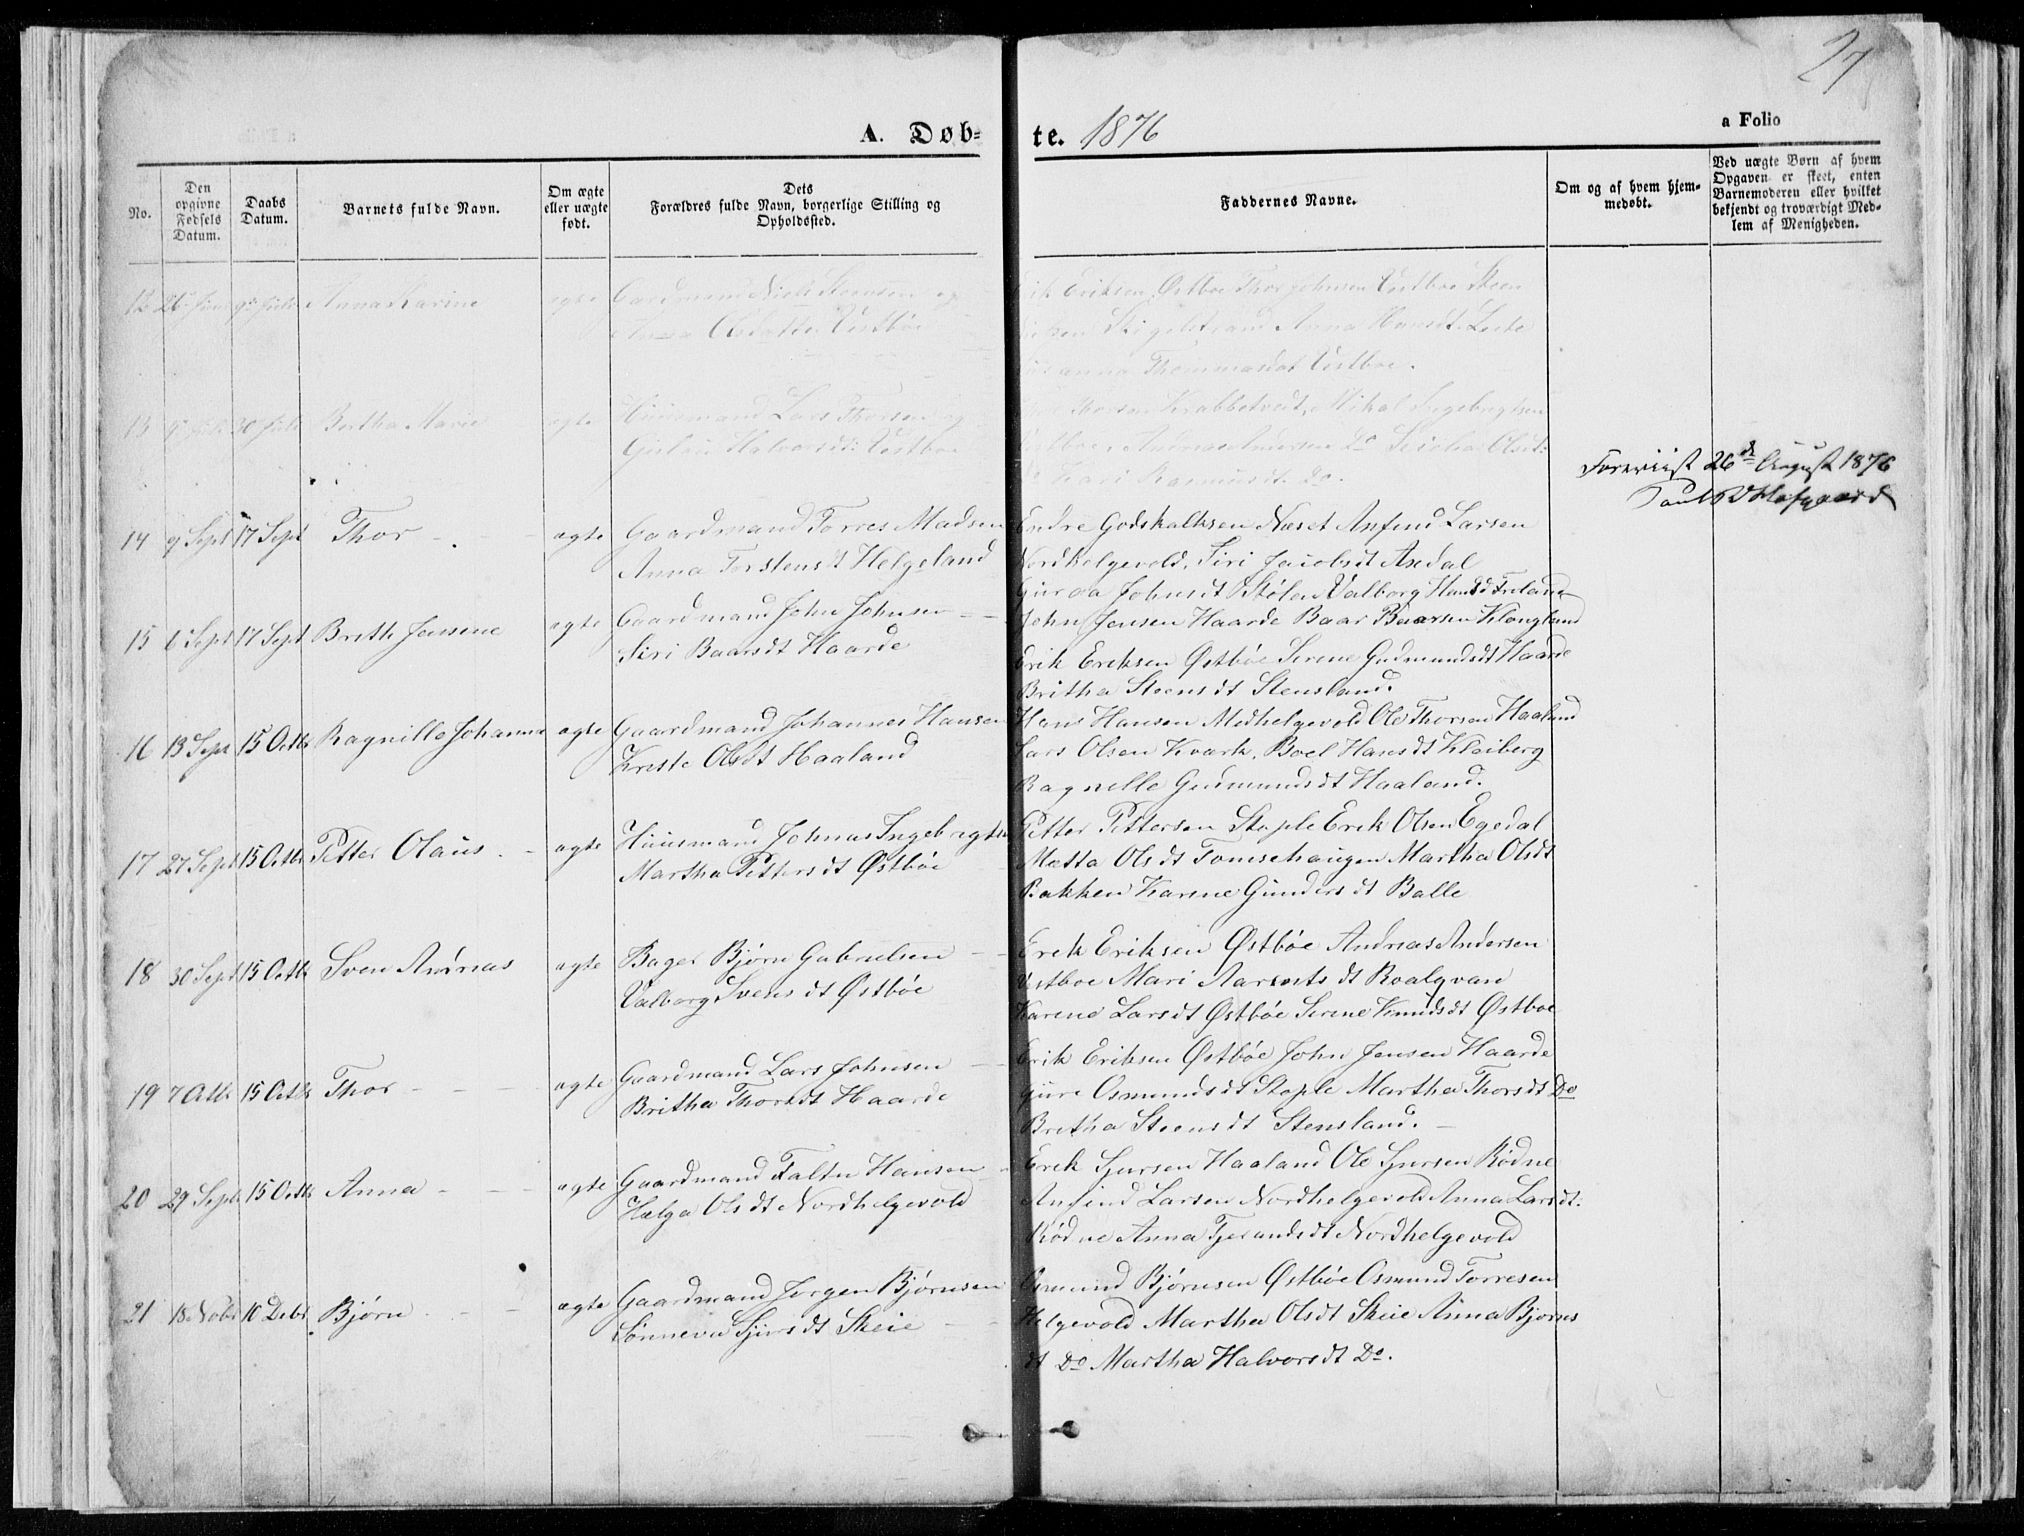 27
A. Døb-
te. 1876
a Folio
No.
Den opgivne Fødsels Datum.
Daabs Datum.
Barnets fulde Navn.
Om ægte eller uægte født.
Dets Forældres fulde Navn, borgerlige Stilling og Opholdssted.
Faddernes Navne.
Om og af hvem hjemmedøbt.
Ved uægte Børn af hvem Opgaven er skeet, enten Barnemoderen eller hvilket bekjendt og troværdigt Medlem af Menigheden.
12 26 Juni 9 Juli Anna Karine ægte Gaardmand Niels Steensen og
Anna Olsdatter Vestbøe
Erik Eriksen Østbøe Thor Johnsen Vestbøe Steen
Anna Hansdt
Thommasdt Vestboe.
13 30 Juli Bertha Marie ægte Huusmand Lars Thorsen og
Halvorsdt: Vestboe
Krabbetvedt, Mikal Ingebrigtsen
Andreas Andersen Do Olsdt:
Kari Rasmusdt. Do.
Foreviist 26de August 1876
14 9 Sept 17 Sept Thor ægte Gaardmand Torres Madsen
Anna Torstensdt Helgeland
Endre Godskalksen Næset Anfind Larsen
Nordhelgevold, Siri Jacobsdt Axdal
Guroa Johnsdt Stølen Valborg Hansdt
15 6 Sept 17 Sept Brith Jensene ægte Gaardmand John Johnsen
Siri Baarsdt Haarde
John Jensen Haarde Baar Baarsen Klongland
Erik Eriksen Østbøe Serine Gudmundsdt Haarde
Britha Steensdt Stensland.
16 13 Sept 15 Octb Ragnille Johanne ægte Gaardmand Johannes Hansen
Kreste Olsdt Haaland
Hans Hansen Midhelgevold Ole Thorsen Haaland
Lars Olsen Kvark, Boel Hansdt Kleiberg
Ragnelle Gudmundsdt Haaland.
17 27 Sept 15 Octb Petter Olaus ægte Huusmand Johnas Ingebrigtsen
Martha Pettersdt Østbøe
Petter Pettersen Stople Erik Olsen Egedal
Metta Olsdt Tomsehaugen Martha Olsdt
Bakken Karine Gundersdt Balle
18 30 Sept 15 Octb Sven Andreas ægte Bager Bjørn Gabrielsen
Valborg Svensdt Østbøe
Erik Eriksen Østbøe Andreas Andersen
Vestboe Mari Aarentsdt Roalqvam
Karine Larsdt Østbøe Serine Knudsdt Østboe
19 7 Octb 15 Octb Thor ægte Gaardmand Lars Johnsen
Britha Thorsdt Haarde
Erik Eriksen Østbøe John Jensen Haarde
Guro Osmundsdt Stople Martha Thorsdt Do
Bretha Steensdt Stensland.
20 29 Sept 15 Octb Anna ægte Gaardmand Faltin Hansen
Helga Olsdt Nordhelgevold
Erik Sjursen Haaland Ole Sjursen Rødne
Anfind Larsen Nordhelgevold Anna Larsdt:
Rødne Anna Tjerandsdt Nordhelgevold
21 18 Nobr 10 Debr Bjørn ægte Gaardmand Jørgen Bjørnsen
Sønneva Sjursdt Skeie
Osmund Bjørnsen Østbøe Osmund Torresen
Helgevold Martha Olsdt Skeie Anna Bjørns
dt Do Martha Halvorsdt Do.